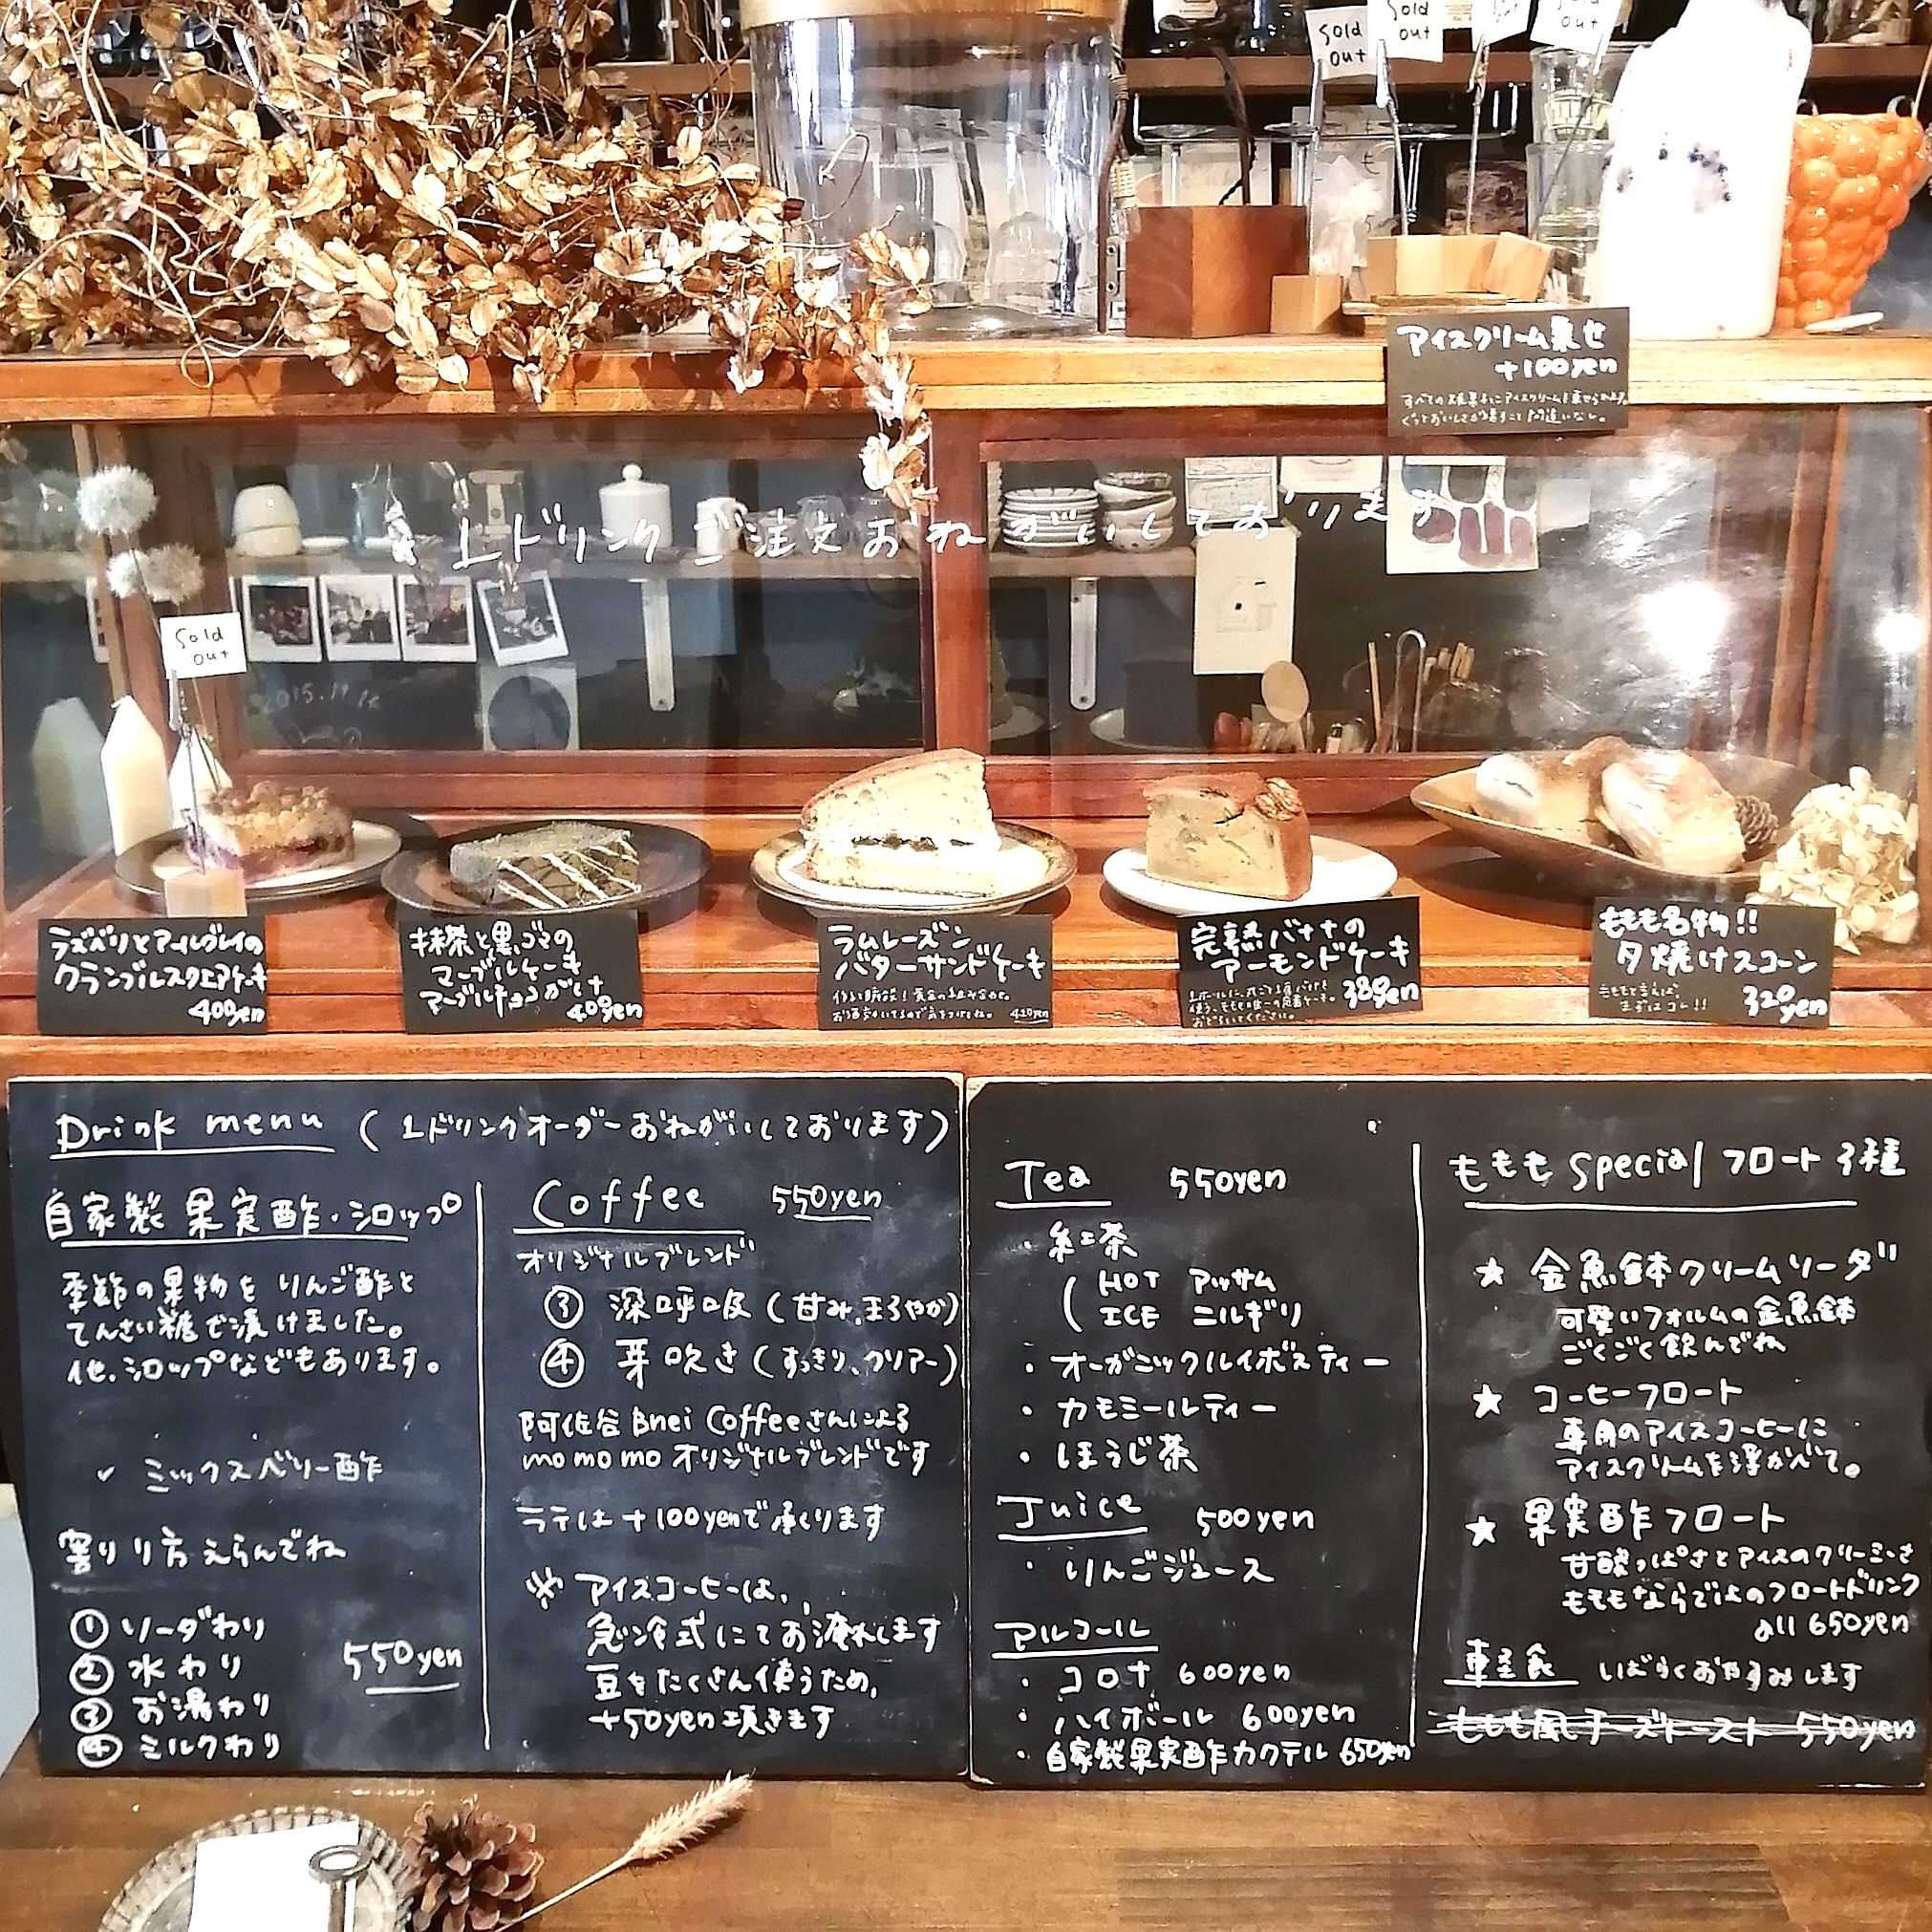 Sold
out
Sold
out
アイスクリーム乗せ
+100yen
1ドリンクご注文おねがいしております
Sold
out
2015.11.
ラズベリとアールグレイの
クランブルスクエアケーキ
400yen
抹茶と黒ゴマの
マーブルケーキ
400yen
ラムレーズン
バターサンドケーキ
420yen
完熟バナナの
アーモンドケーキ
380yen
ももも名物!!
夕焼けスコーン
まずはコレ!!
320yen
Drink menu (1ドリンクオーダーおねがいしております)
自家製果実酢・シロップ
季節の果物を りんご酢と
てんさい糖で漬けました。
他、シロップなどもあります。
✓ ミックスベリー酢
割り方えらんでね
① ソーダわり
② 水わり
③ お湯わり
④ ミルクわり
550yen
Coffee 550yen
オリジナルブレンド
③ 深呼吸(甘み、まろやか)
④ 芽吹き(すっきり、クリアー)
阿佐谷 Bnei Coffeeさんによる
momomo オリジナルブレンドです
ラテは +100yenで承ります
※ アイスコーヒーは、
急冷式にてお淹れします
豆をたくさん使うため、
+50yen頂きます
Tea 550yen
・紅茶
( HOT アッサム
ICE ニルギリ
・オーガニックルイボスティー
・カモミールティー
・ほうじ茶
Juice 500yen
・りんごジュース
アルコール
・コロナ 600yen
・ハイボール 600yen
・自家製果実酢カクテル 650yen
ももも Special フロート3種
★ 金魚鉢クリームソーダ
可愛いフォルムの金魚鉢
ごくごく飲んでね
★ コーヒーフロート
専用のアイスコーヒーに
アイスクリームを浮かべて。
★ 果実酢フロート
甘酸っぱさとアイスのクリーミーさ
もももならではのフロートドリンク
all 650yen
軽食 しばらくおやすみします
ももも風チーズトースト 550yen